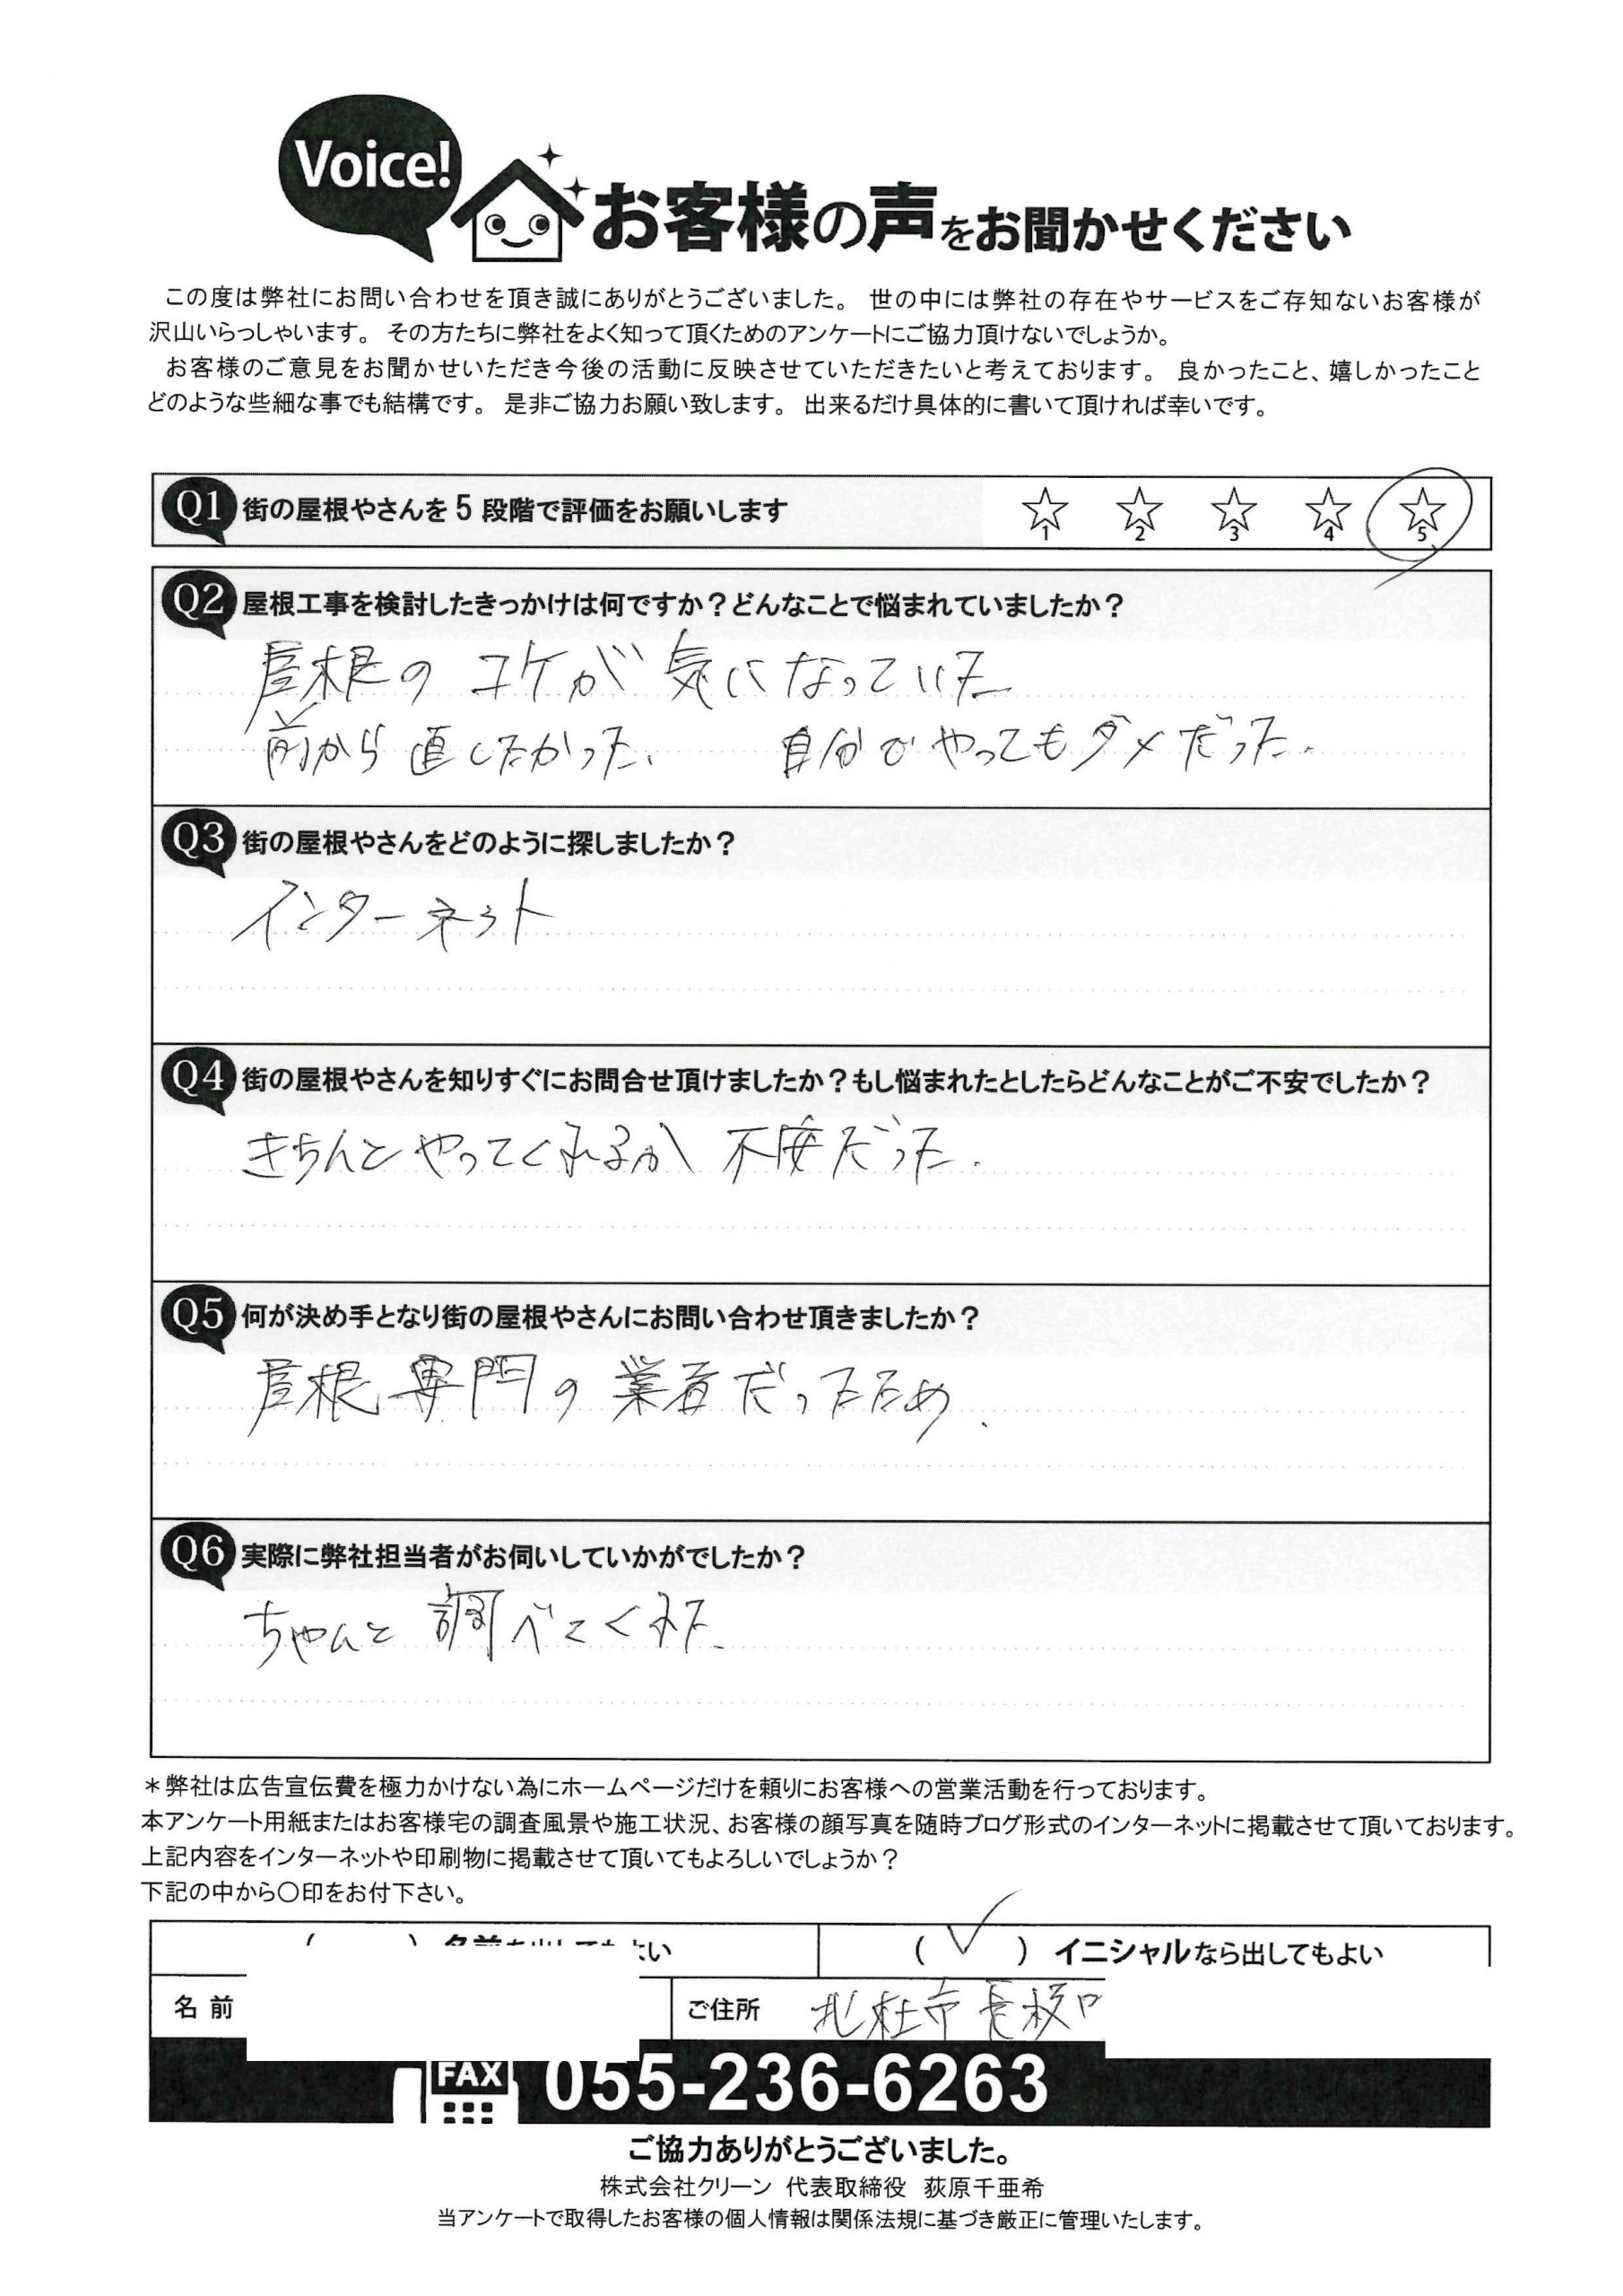 Voice!
お客様の声をお聞かせください
この度は弊社にお問い合わせを頂き誠にありがとうございました。 世の中には弊社の存在やサービスをご存知ないお客様が
沢山いらっしゃいます。 その方たちに弊社をよく知って頂くためのアンケートにご協力頂けないでしょうか。
お客様のご意見をお聞かせいただき今後の活動に反映させていただきたいと考えております。 良かったこと、嬉しかったこと
どのような些細な事でも結構です。 是非ご協力お願い致します。 出来るだけ具体的に書いて頂ければ幸いです。
Q1 街の屋根やさんを5段階で評価をお願いします ☆1 ☆2 ☆3 ☆4 ☆5
Q2 屋根工事を検討したきっかけは何ですか？どんなことで悩まれていましたか？
屋根のコケが気になっていた
前から直したかった、 自分でやってもダメだった.
Q3 街の屋根やさんをどのように探しましたか？
インターネット
Q4 街の屋根やさんを知りすぐにお問合せ頂けましたか？もし悩まれたとしたらどんなことがご不安でしたか？
きちんとやってくれるか不安だった.
Q5 何が決め手となり街の屋根やさんにお問い合わせ頂きましたか？
屋根専門の業者だったため.
Q6 実際に弊社担当者がお伺いしていかがでしたか？
ちゃんと調べてくれた.
＊弊社は広告宣伝費を極力かけない為にホームページだけを頼りにお客様への営業活動を行っております。
本アンケート用紙またはお客様宅の調査風景や施工状況、お客様の顔写真を随時ブログ形式のインターネットに掲載させて頂いております。
上記内容をインターネットや印刷物に掲載させて頂いてもよろしいでしょうか？
下記の中から〇印をお付下さい。
( ) 名前を出してもよい ( ✓ ) イニシャルなら出してもよい
名前 ご住所 北杜市長坂
FAX 055-236-6263
ご協力ありがとうございました。
株式会社クリーン 代表取締役 荻原千亜希
当アンケートで取得したお客様の個人情報は関係法規に基づき厳正に管理いたします。